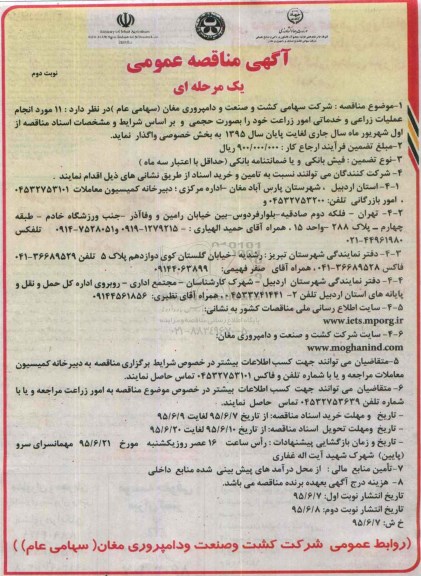 آگهی مناقصه عمومی
نوبت دوم
یک مرحله ای
۱-موضوع مناقصه : شرکت سهامی کشت و صنعت و دامپروری مغان (سهامی عام )در نظر دارد : ۱۱ مورد انجام
عملیات زراعی و خدماتی امور زراعت خود را بصورت حجمی و بر اساس شرایط و مشخصات اسناد مناقصه از
اول شهریور ماه سال جاری لغایت پایان سال ۱۳۹۵ به بخش خصوصی واگذار نماید.
۲-مبلغ تضمین فرآیند ارجاع کار : ۹۰۰/۰۰۰/۰۰۰ ریال
۳-نوع تضمین : فیش بانکی و یا ضمانتنامه بانکی (حداقل با اعتبار سه ماه )
۴- شرکت کنندگان می توانند نسبت به تامین و خرید اسناد از طریق نشانی های ذیل اقدام نمایند .
۴-۱- استان اردبیل ، شهرستان پارس آباد مغان -اداره مرکزی ؛ دبیرخانه کمیسیون معاملات ۰۴۵۳۲۷۵۳۱۰۱
، امور بازرگانی تلفن: ۰۴۵۳۲۷۵۳۲۰۰ و
۴-۲- تهران - فلکه دوم صادقیه-بلوارفردوس-بین خیابان رامین و وفاآذر -جنب ورزشگاه خادم - طبقه
چهارم – پلاک ۲۸۸ -واحد ۱۵ ، همراه آقای حمید الهیاری : ۱۲۷۹۲۱۵-۰۹۱۹ و۷۵۲۸۰۵۱-۰۹۱۴ تلفکس
۴۴۹۶۱۹۸۰-۰۲۱
۴-۳- دفتر نمایندگی شهرستان تبریز : رشدیه -خیابان گلستان کوی دوازدهم پلاک ۵ تلفن ۳۶۶۸۹۵۲۹-۰۴۱
فاکس ۳۶۶۸۹۵۲۸-۰۴۱، همراه آقای صفر فهیمی: ۰۹۱۴۴۰۶۳۸۹۹
۴-۴- دفتر نمایندگی شهرستان اردبیل - شهرک کارشناسان - مجتمع اداری - روبروی اداره کل حمل و نقل و
پایانه های استان اردبیل تلفن ۲- ۰۴۵۳۳۷۴۱۴۴۱ ، همراه آقای نظیری: ۰۹۱۴۳۵۶۱۸۵۶
۴-۵- سایت اطلاع رسانی ملی مناقصات کشور به نشانی:
www.iets.mporg.ir
۴-۶- سایت شرکت کشت و صنعت و دامپروری مغان:
www.moghanind.com
۵-متقاضیان می توانند جهت کسب اطلاعات بیشتر در خصوص شرایط برگزاری مناقصه به دبیرخانه کمیسیون
معاملات مراجعه و یا با شماره تلفن و فاکس ۰۴۵۳۲۷۵۳۱۰۱ تماس حاصل نمایند.
۶- متقاضیان می توانند جهت کسب اطلاعات بیشتر در خصوص موضوع مناقصه به امور زراعت مراجعه و یا با
شماره تلفن ۰۴۵۳۲۷۵۳۶۳۹ تماس حاصل نمایند.
- تاریخ و مهلت خرید اسناد مناقصه: از تاریخ ۹۵/۶/۷ لغایت ۹۵/۶/۹
- تاریخ ومهلت تحویل اسناد مناقصه: از تاریخ ۹۵/۶/۱۰ لغایت ۹۵/۶/۲۰
- تاریخ و زمان بازگشایی پیشنهادات : رأس ساعت ۱۶ عصر روزیکشنبه مورخ ۹۵/۶/۲۱ مهمانسرای سرو
(پایین) شهرک شهید آیت اله غفاری
۷-تأمین منابع مالی : از محل درآمد های پیش بینی شده منابع داخلی
۸- هزینه درج آگهی بعهده برنده مناقصه می باشد.
تاریخ انتشار نوبت اول: ۹۵/۶/۷
تاریخ انتشار نوبت دوم: ۹۵/۶/۸
خ ش: ۹۵/۶/۷
(روابط عمومی شرکت کشت وصنعت ودامپروری مغان( سهامی عام))